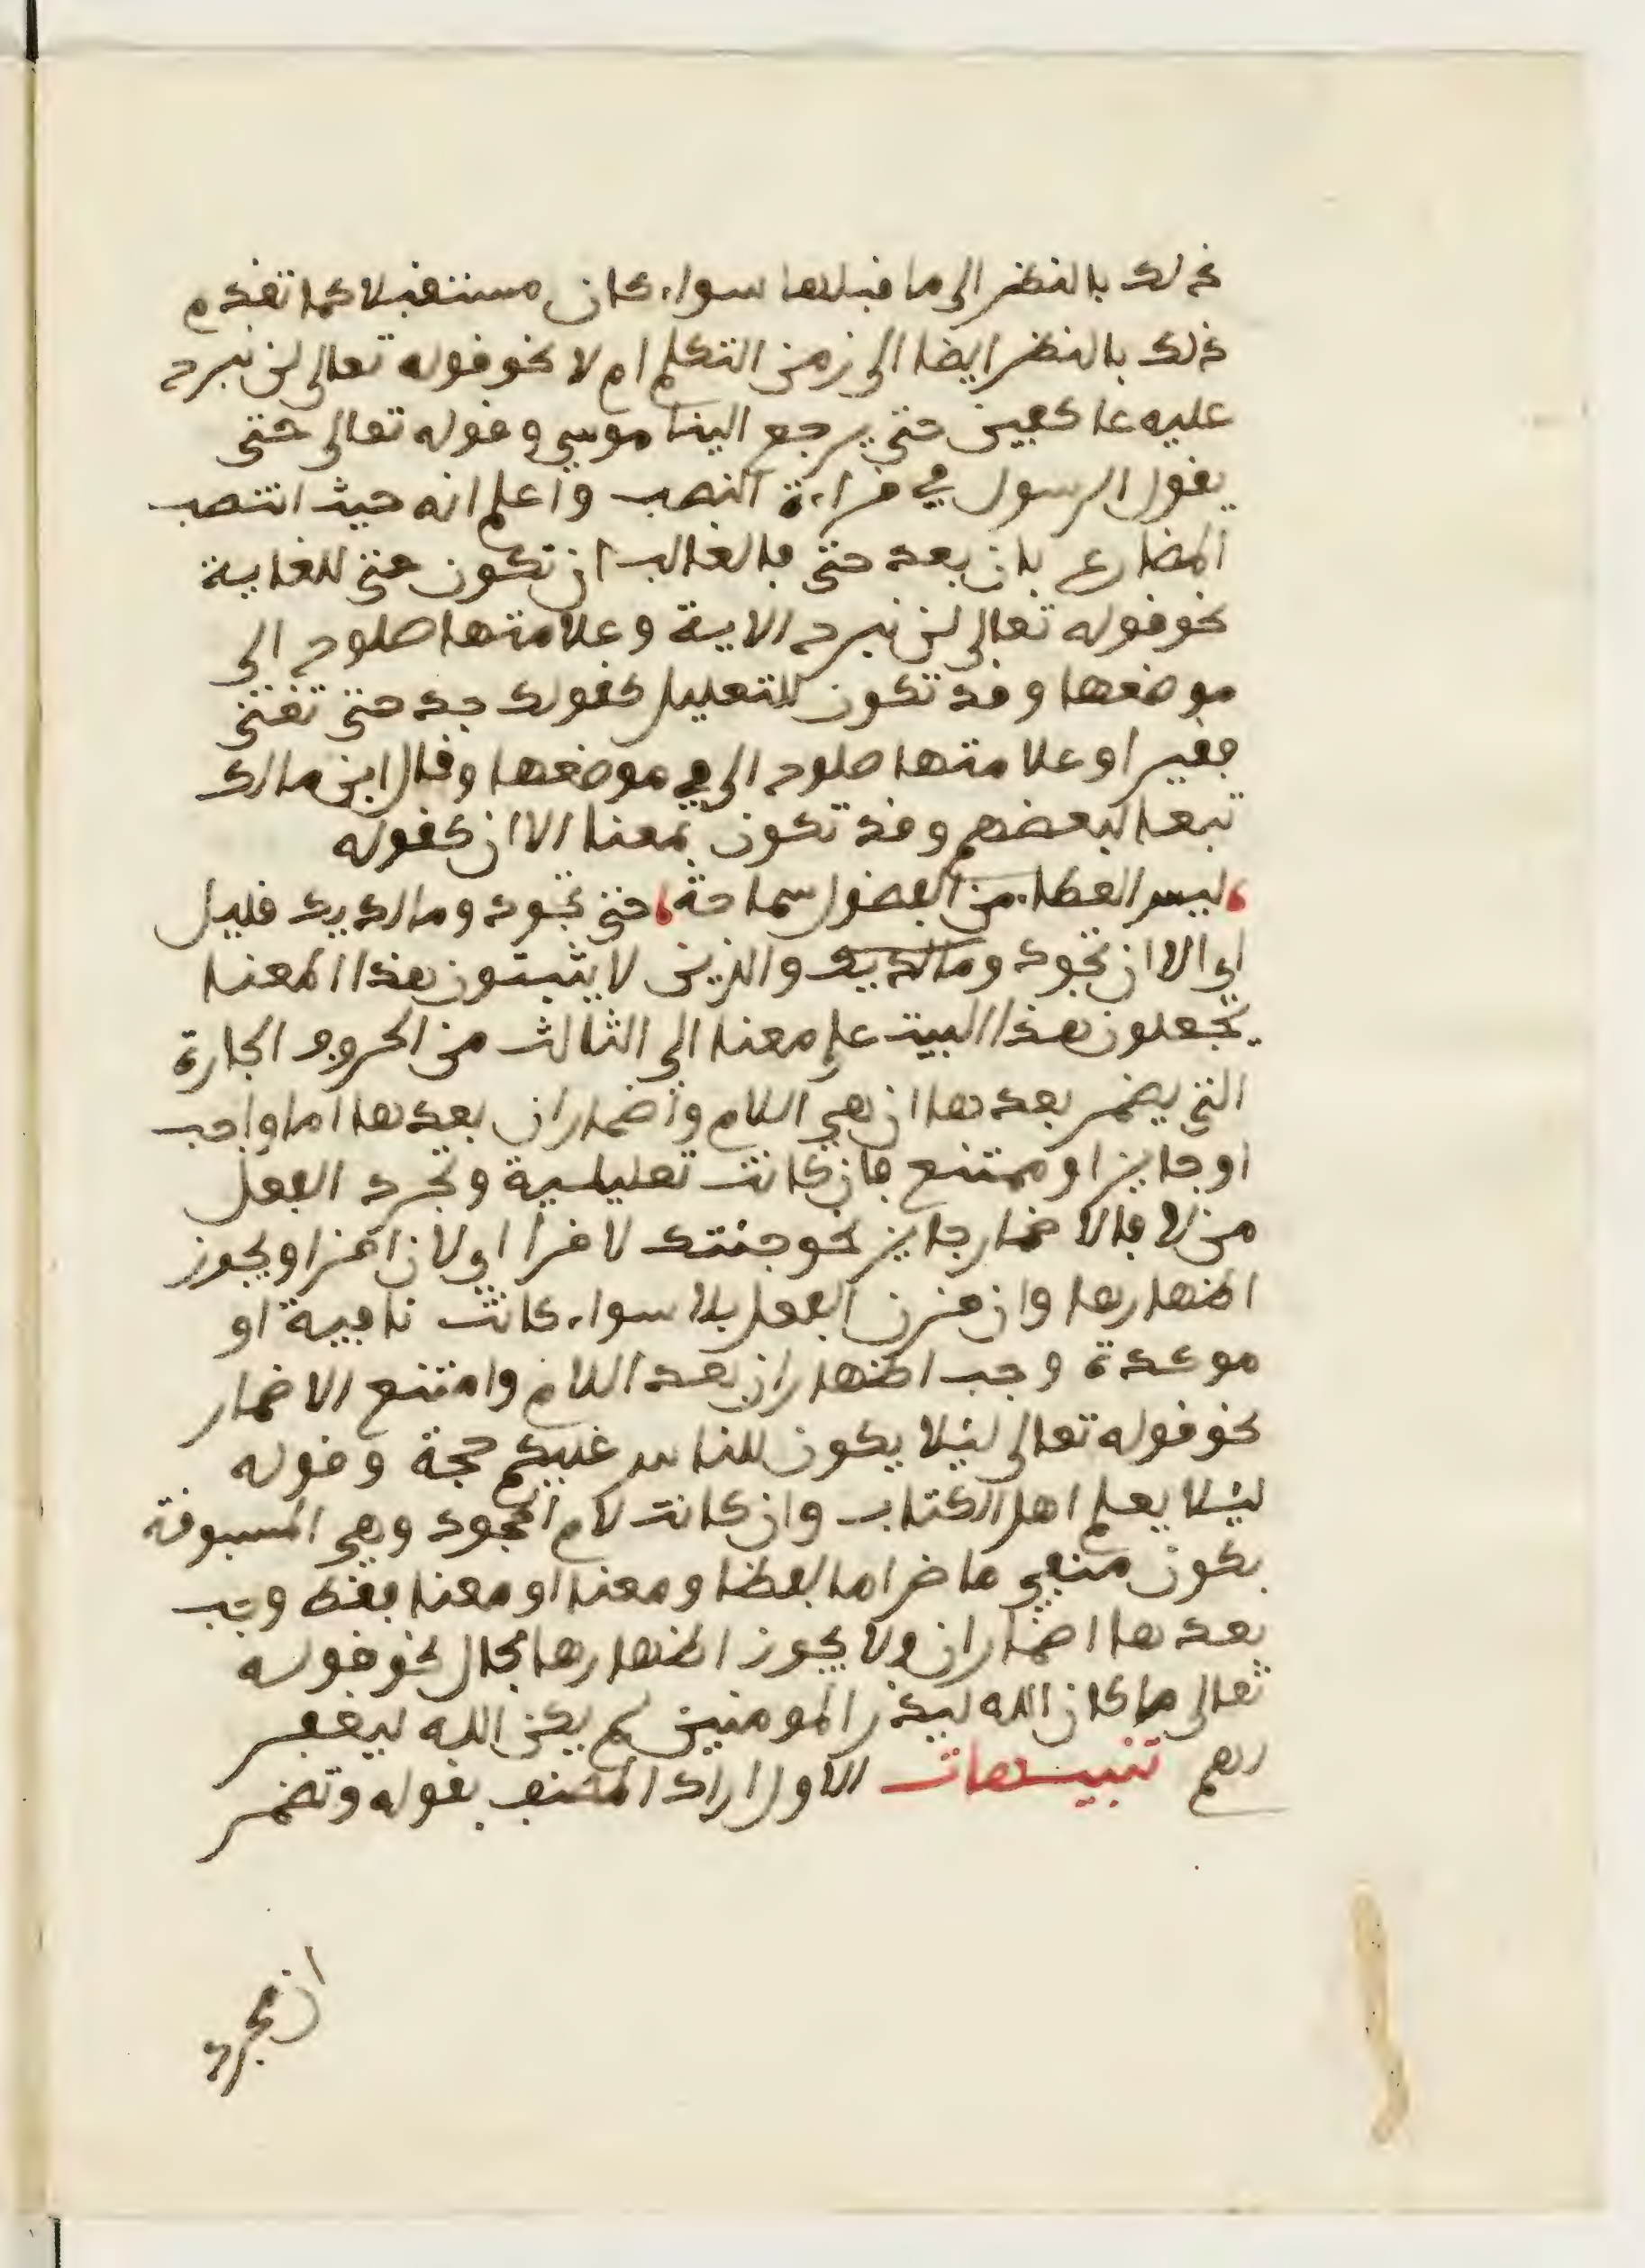 ذلك بالنظر الى ما قبلها سواء كان مستقبلا كما تقدم
ذلك بالنظر ايضا الى زمن التكلم ام لا نحو قوله تعالى لن نبرح
عليه عاكفين حتى يرجع الينا موسى وقوله تعالى حتى
يقول الرسول في قراءة النصب واعلم انه حيث انتصب
المضارع بان بعد حتى فالغالب ان تكون حتى للغاية
نحو قوله تعالى لن نبرح الاية وعلامتها صلوح الى
موضعها وقد تكون للتعليل كقولك جد حتى تغنى
فقيرا وعلامتها صلوح الى في موضعها وقال ابن مالك
تبعا لبعضهم وقد تكون بمعنا الا ان كقوله
ليس العطاء من الفضول سماحة حتى تجود وما لديك قليل
اي الا ان تجود وما لديك والذين لا يثبتون هذا المعنا
يجعلون هذا البيت على معنا الى الثالث من الحروف الجارة
التى يضمر بعدها ان هي اللام واضمار ان بعدها اما واجب
او جايز او ممتنع فان كانت تعليلية وتجرد الفعل
من لا فالاضمار جايز نحو جئتك لاقرا اي لان اقرا ويجوز
اظهارها وان قرن الفعل بلا سواء كانت نافية او
موكدة وجب اظهار ان بعد اللام وامتنع الاضمار
نحو قوله تعالى ليلا يكون للناس عليكم حجة وقوله
ليلا يعلم اهل الكتاب وان كانت لام الجحود وهي المسبوقة
بكون منفي ماض اما لفظا ومعنا او معنا فقط وجب
بعدها اضمار ان ولا يجوز اظهارها بحال نحو قوله
تعالى ما كان الله ليذر المومنين لم يكن الله ليغفر
لهم تنبيهات الاول اراد المصنف بقوله وتضمر